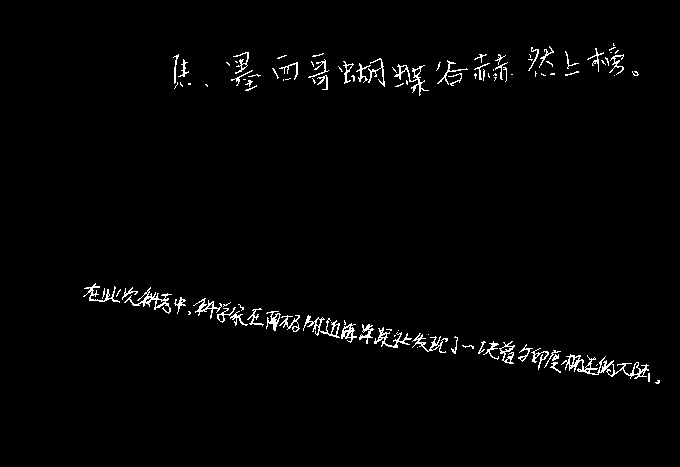 焦、墨西哥蝴蝶谷赫然上榜。
在此次科考中,科学家在南极附近海洋深处发现了一块曾与印度相连的大陆。